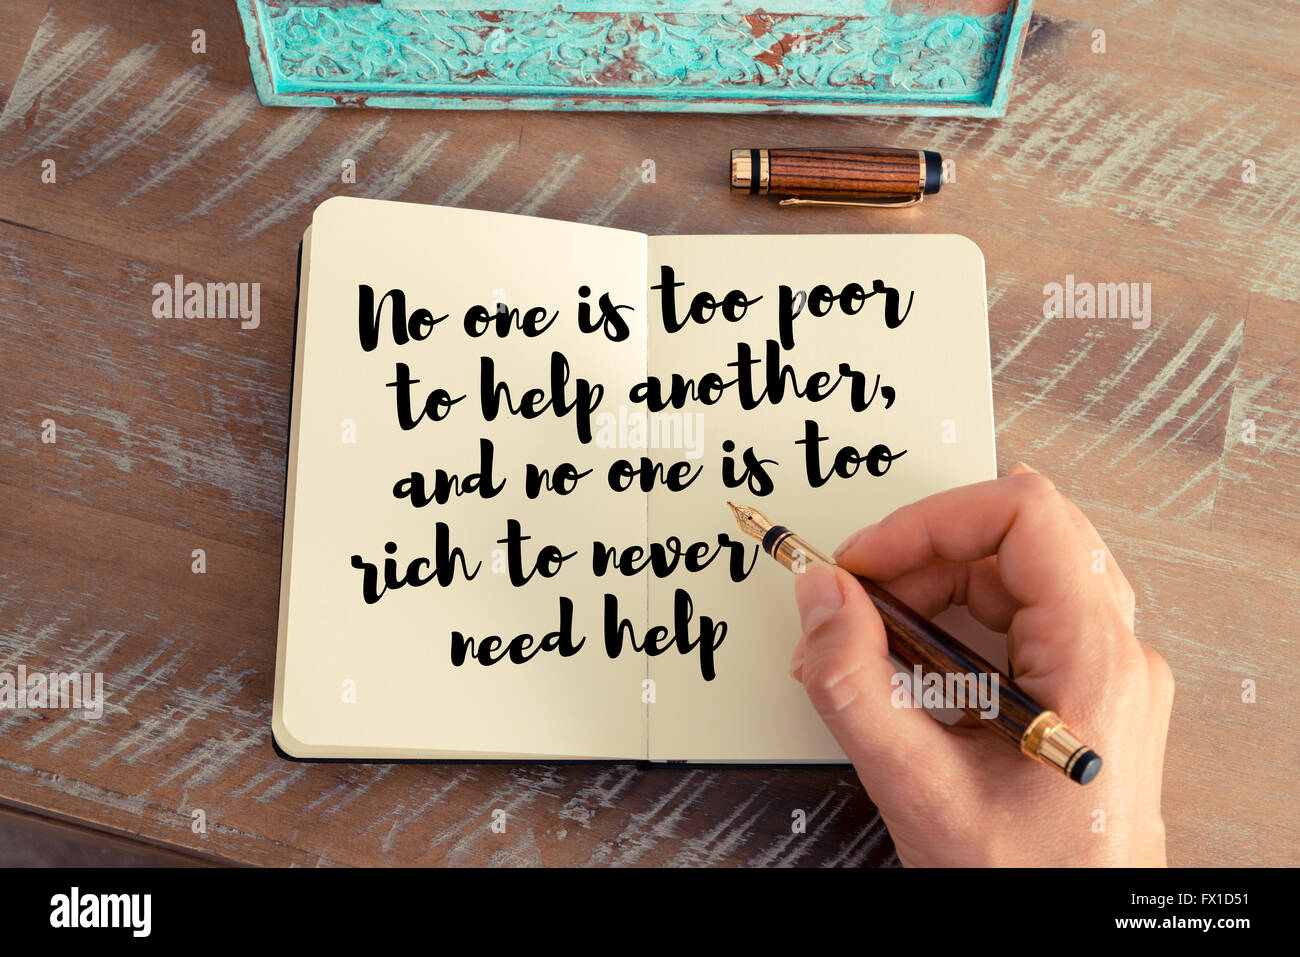 No one is too poor
to help another,
and no one is too
rich to never
need help
alamy stock photo
FX1D51
www.alamy.com